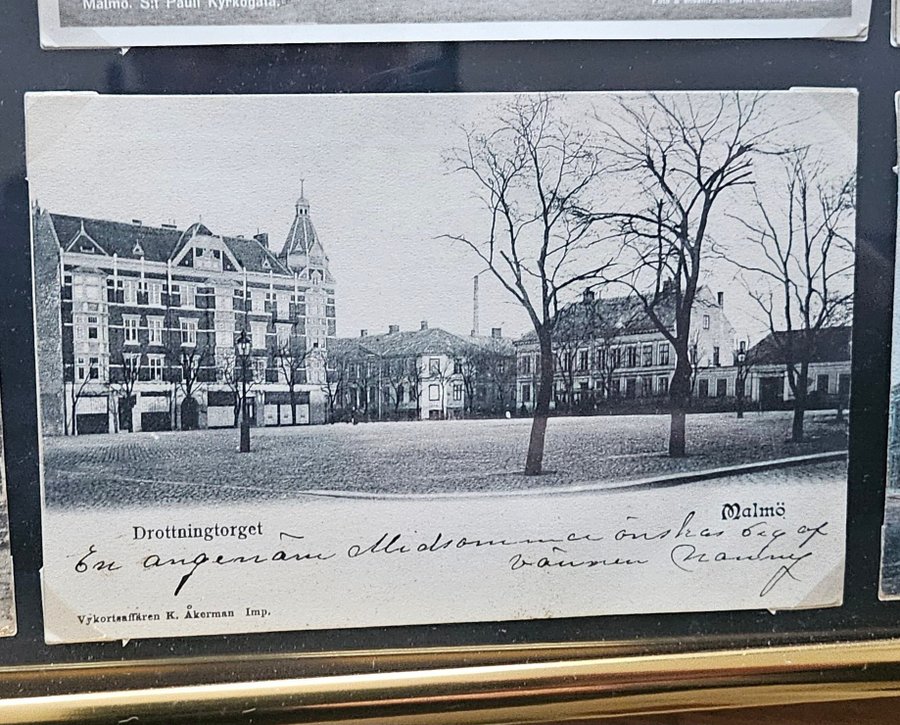 Malmö. S:t Pauli Kyrkogata.
Drottningtorget
Malmö
En angenäm Midsommar önskas Eig af
vännen
Vykortsaffären K. Åkerman Imp.